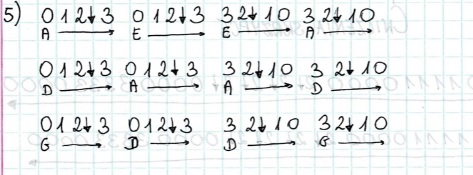 5) 012↓3 012↓3 32↓10 32↓10
A → E → E → A →
012↓3 012↓3 32↓10 32↓10
D → A → A → D →
012↓3 012↓3 32↓10 32↓10
G → D → D → G →